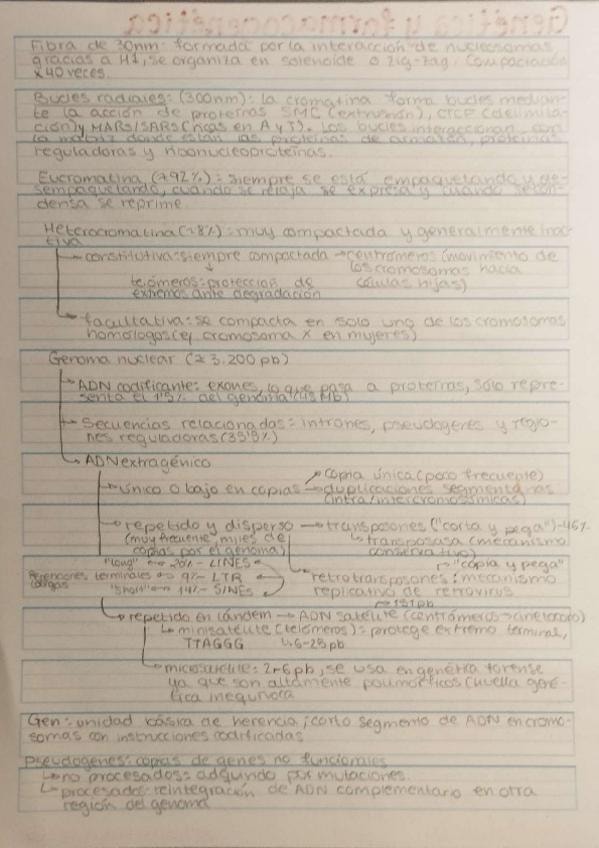 Genética y farmacogenética
Fibra de 30nm: formada por la interacción de nucleosomas
gracias a H1, se organiza en solenoide o zig-zag. Compactación
x40 veces.
Bucles radiales: (300nm): la cromatina forma bucles median-
te la acción de proteínas SMC (extrusión), CTCF (delimita-
ción) y MARS/SARS (ricas en A y T). Los bucles interaccionan con
la matriz donde están las proteínas de armazón, proteínas
reguladoras y ribonucleoproteínas.
Eucromatina, (≈92%): siempre se está empaquetando y de-
sempaquetando, cuando se relaja se expresa y cuando se con-
densa se reprime.
Heterocromatina (≈8%): muy compactada y generalmente inac-
tiva
constitutiva: siempre compactada → centrómeros (movimiento de
los cromosomas hacia
telómeros: protección de células hijas)
extremos ante degradación
facultativa: se compacta en solo uno de los cromosomas
homólogos (ej cromosoma X en mujeres)
Genoma nuclear (≈3.200 pb)
ADN codificante: exones, lo que pasa a proteínas, sólo repre-
senta el 1'5% del genoma (48 Mb)
Secuencias relacionadas: intrones, pseudogenes y regio-
nes reguladoras (35'5%)
ADN extragénico
copia única (poco frecuente)
único o bajo en copias → duplicaciones segmentarias
(intra/intercromosómicas)
repetido y disperso → transposones ("corta y pega") - 46%
(muy frecuente, miles de → transposasa (mecanismo
copias por el genoma) conservativo)
"long" ← 20% - LINES → "copia y pega"
terminales ← 9% - LTR retrotransposones: mecanismo
largas "short" ← 14% - SINES replicativo de retrovirus
→ 171pb
repetido en tándem → ADN satélite (centrómeros → cinetocoro)
minisatélite (telómeros): protege extremo terminal,
TTAGGG ↳ 6-25 pb
microsatélite: 2-6 pb, se usa en genética forense
ya que son altamente polimórficos (huella gené-
tica inequívoca
Gen: unidad básica de herencia; corto segmento de ADN en cromo-
somas con instrucciones codificadas
Pseudogenes: copias de genes no funcionales
no procesados: adquirido por mutaciones.
procesados: reintegración de ADN complementario en otra
región del genoma